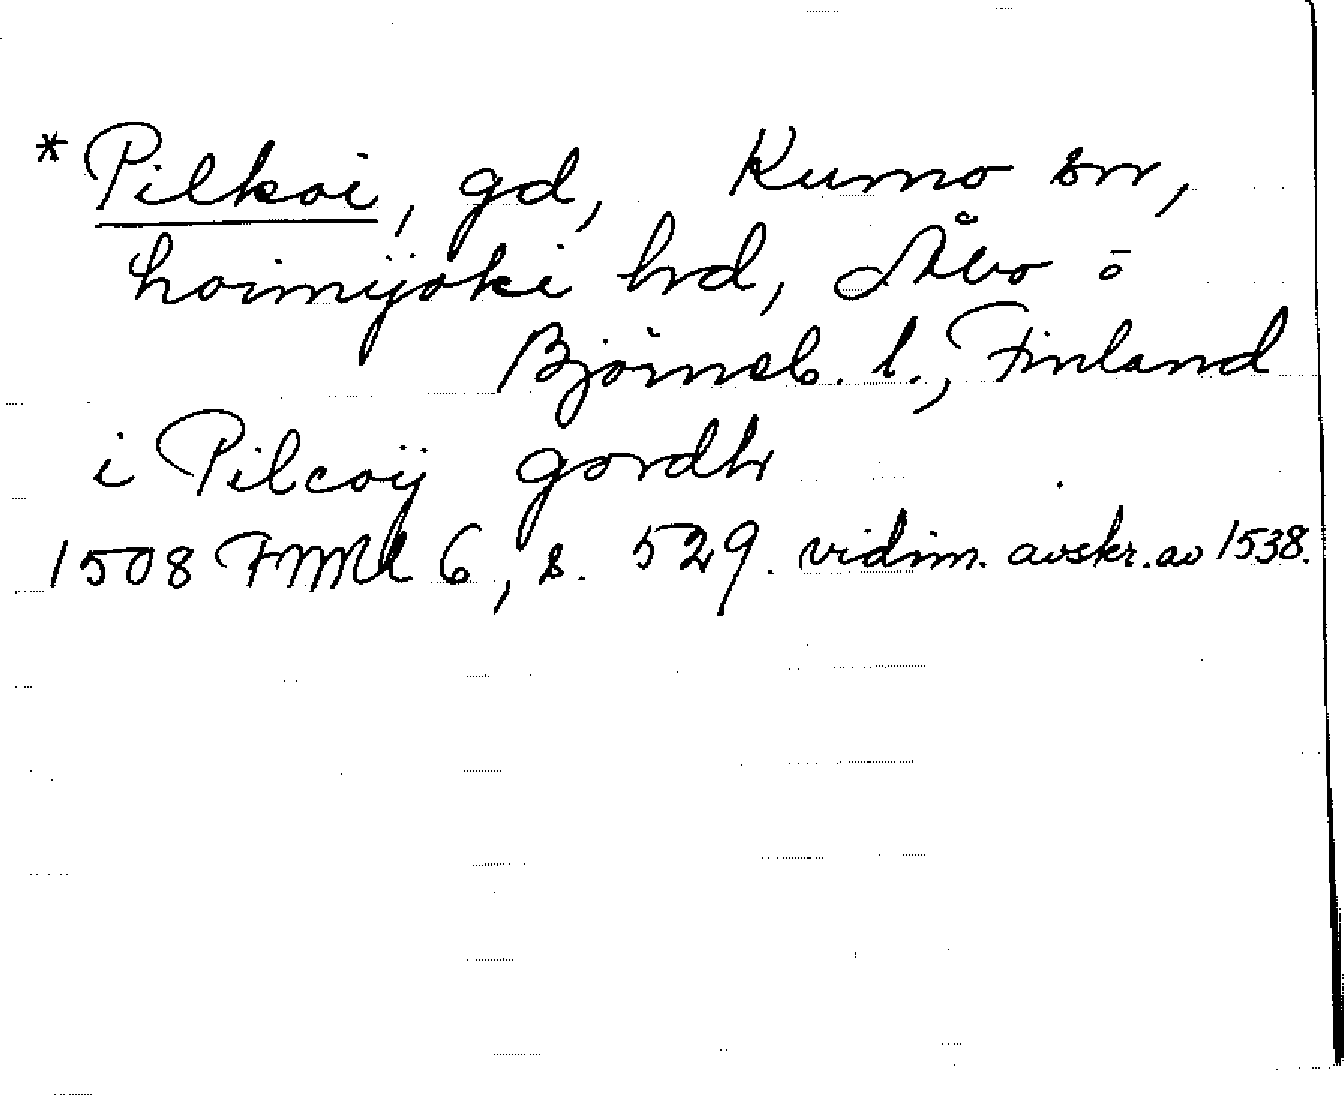 * Pilkoi, gd, Kumo sn,
Loimijoki hd, Åbo o
Björneb. l., Finland
i Pilcoij gordh
1508 FMU 6, s. 529. vidim. avskr. av 1538.